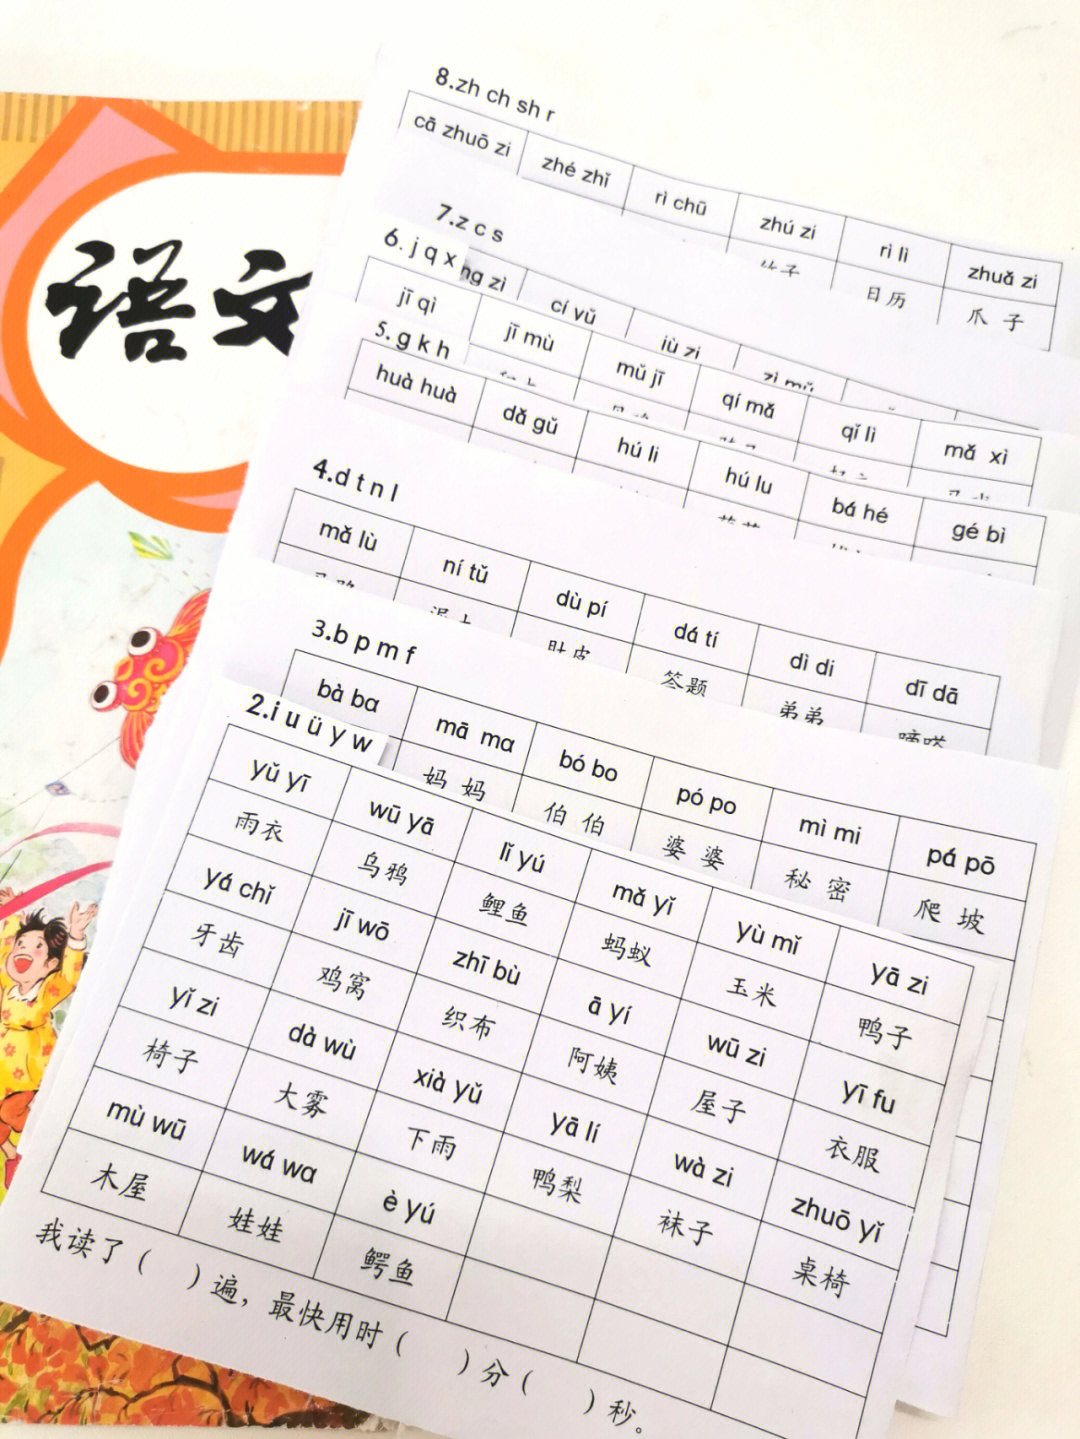 语文
8.zh ch sh r
cā zhuō zi zhé zhǐ rì chū zhú zi rì lì zhuǎ zi
竹子 日历 爪 子
7.z c s
cí yǔ
6. j q x
jī qì jī mù mǔ jī qí mǎ qǐ lì mǎ xì
5. g k h
huà huà dǎ gǔ hú li hú lu bá hé gé bì
4.d t n l
mǎ lù ní tǔ dù pí dá tí dì di dī dā
马路 泥土 肚皮 答题 弟弟 嘀嗒
3.b p m f
bà ba mā ma bó bo pó po mì mi pá pō
妈 妈 伯 伯 婆 婆 秘 密 爬 坡
2.i u ü y w
yǔ yī wū yā lǐ yú mǎ yǐ yù mǐ yā zi
雨衣 乌鸦 鲤鱼 蚂蚁 玉米 鸭子
yá chǐ jī wō zhī bù ā yí wū zi yī fu
牙齿 鸡窝 织布 阿姨 屋子 衣服
yǐ zi dà wù xià yǔ yā lí wà zi zhuō yǐ
椅子 大雾 下雨 鸭梨 袜子 桌椅
mù wū wá wa è yú
木屋 娃娃 鳄鱼
我读了（ ）遍，最快用时（ ）分（ ）秒。